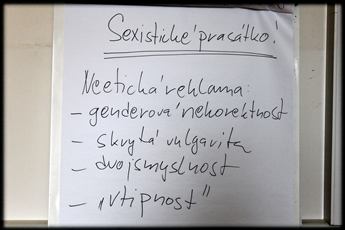 Sexistické prasátko!
Neetická reklama:
- genderová nekorektnost
- skrytá vulgarita
- dvojsmyslnost
- „vtipnost"